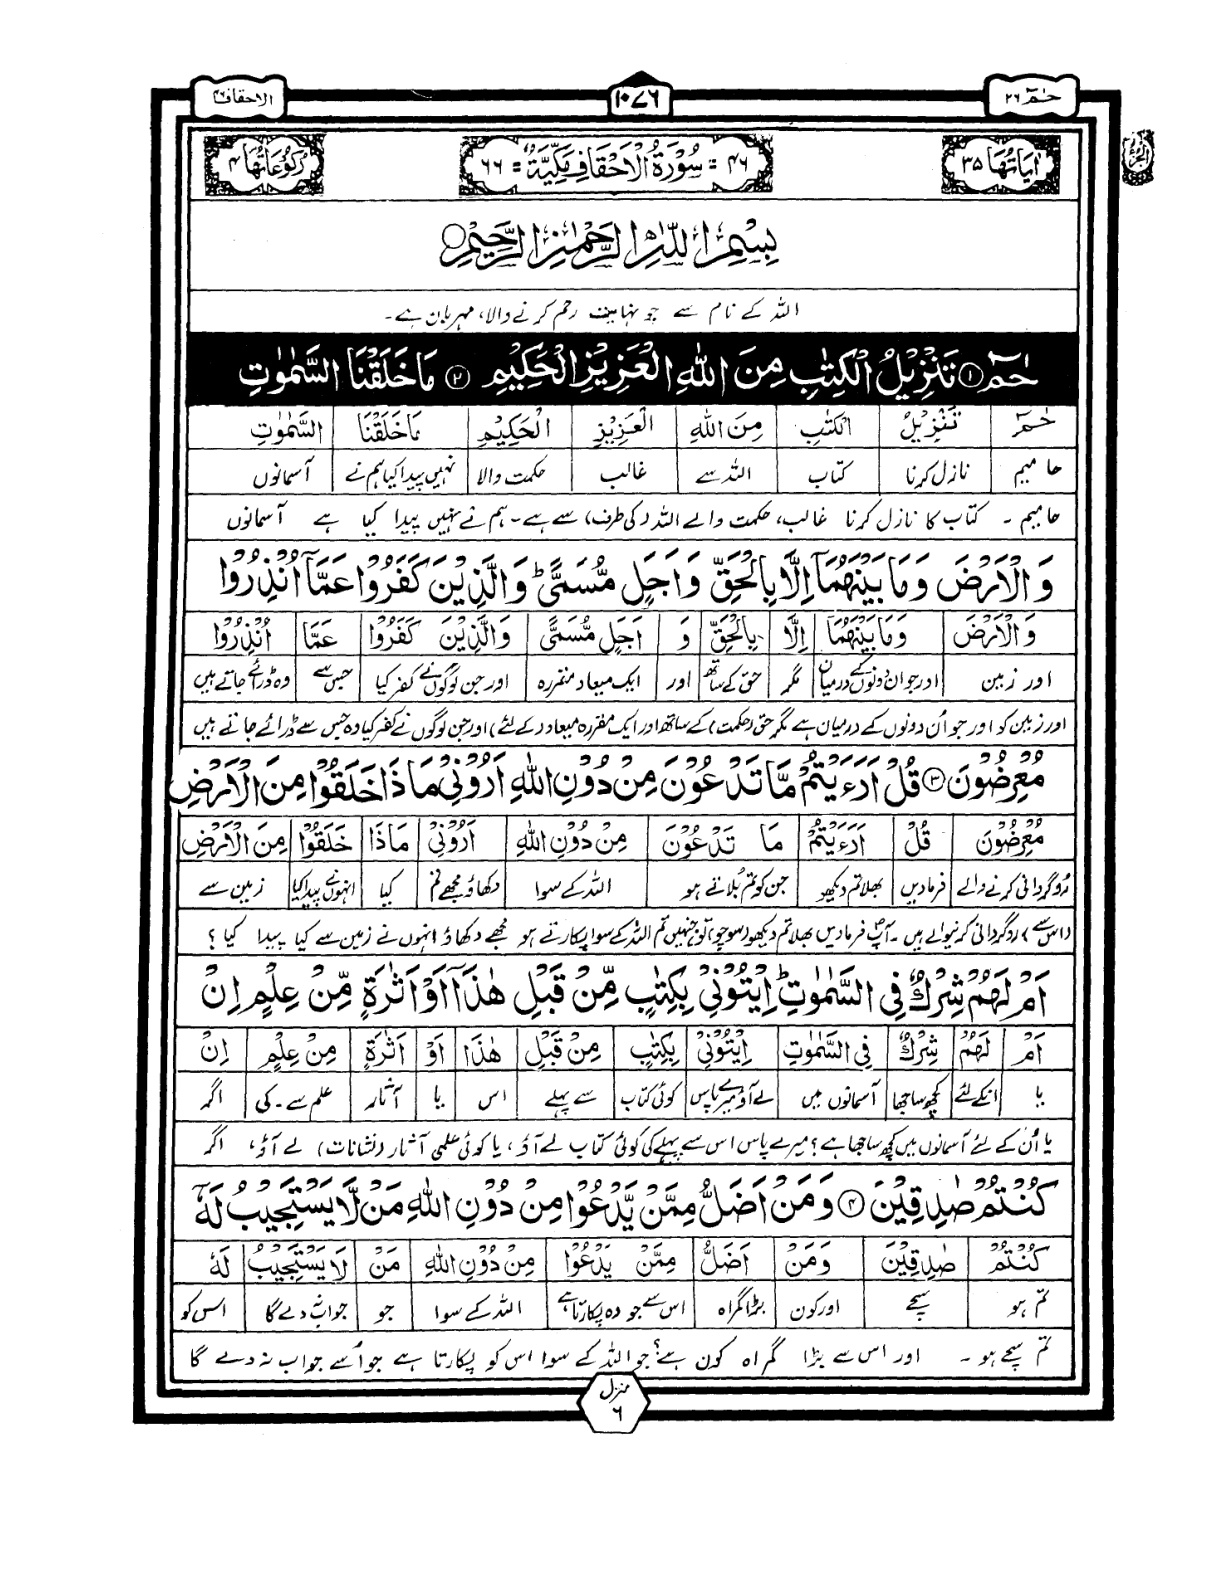 حٰمٓ ۲۶
۱۰۷۶
الاحقاف ۴۶
اٰيَاتُهَا ۳۵
۴۶ = سُوْرَةُ الْاَحْقَافِ مَكِّيَّةٌ = ۶۶
رُكُوْعَاتُهَا ۴
الجزء
بِسْمِ اللّٰهِ الرَّحْمٰنِ الرَّحِيْمِ
اللہ کے نام سے جو نہایت رحم کرنے والا، مہربان ہے۔
حٰمٓ ۱ تَنْزِيْلُ الْكِتٰبِ مِنَ اللّٰهِ الْعَزِيْزِ الْحَكِيْمِ ۲ مَا خَلَقْنَا السَّمٰوٰتِ
حٰمٓ تَنْزِيْلُ الْكِتٰبِ مِنَ اللّٰهِ الْعَزِيْزِ الْحَكِيْمِ مَا خَلَقْنَا السَّمٰوٰتِ
حا میم نازل کرنا کتاب اللہ سے غالب حکمت والا نہیں پیدا کیا ہم نے آسمانوں
حا میم ۔ کتاب کا نازل کرنا غالب، حکمت والے اللہ (کی طرف) سے ہے۔ ہم نے نہیں پیدا کیا ہے آسمانوں
وَالْاَرْضَ وَمَا بَيْنَهُمَآ اِلَّا بِالْحَقِّ وَاَجَلٍ مُّسَمًّى ؕ وَالَّذِيْنَ كَفَرُوْا عَمَّآ اُنْذِرُوْا
وَالْاَرْضَ وَمَا بَيْنَهُمَا اِلَّا بِالْحَقِّ وَ اَجَلٍ مُّسَمًّى وَالَّذِيْنَ كَفَرُوْا عَمَّا اُنْذِرُوْا
اور زمین اور جو ان دونوں کے درمیان مگر حق کے ساتھ اور ایک میعاد مقررہ اور جن لوگوں نے کفر کیا جس سے وہ ڈرائے جاتے ہیں
اور زمین کو اور جو اُن دونوں کے درمیان ہے مگر حق (حکمت) کے ساتھ اور ایک مقررہ میعاد (کے لئے) اور جن لوگوں نے کفر کیا وہ جس سے ڈرائے جاتے ہیں
مُعْرِضُوْنَ ۳ قُلْ اَرَءَيْتُمْ مَّا تَدْعُوْنَ مِنْ دُوْنِ اللّٰهِ اَرُوْنِيْ مَاذَا خَلَقُوْا مِنَ الْاَرْضِ
مُعْرِضُوْنَ قُلْ اَرَءَيْتُمْ مَا تَدْعُوْنَ مِنْ دُوْنِ اللّٰهِ اَرُوْنِيْ مَاذَا خَلَقُوْا مِنَ الْاَرْضِ
رُوگردانی کرنے والے فرمادیں بھلا تم دیکھو جن کو تم بُلاتے ہو اللہ کے سوا دکھاؤ مجھے تم کیا انہوں نے پیدا کیا زمین سے
(اس سے) روگردانی کرنیوالے ہیں ۔ آپؐ فرمادیں بھلا تم دیکھو (سوچو) تو جنہیں تم اللہ کے سوا پکارتے ہو مجھے دکھاؤ انہوں نے زمین سے کیا پیدا کیا ؟
اَمْ لَهُمْ شِرْكٌ فِي السَّمٰوٰتِ ؕ اِيْتُوْنِيْ بِكِتٰبٍ مِّنْ قَبْلِ هٰذَآ اَوْ اَثٰرَةٍ مِّنْ عِلْمٍ اِنْ
اَمْ لَهُمْ شِرْكٌ فِي السَّمٰوٰتِ اِيْتُوْنِيْ بِكِتٰبٍ مِنْ قَبْلِ هٰذَا اَوْ اَثٰرَةٍ مِنْ عِلْمٍ اِنْ
یا انکے لئے کچھ ساجھا آسمانوں میں لے آؤ میرے پاس کوئی کتاب سے پہلے اس یا آثار علم سے ۔ کی اگر
یا اُن کے لئے آسمانوں میں کچھ ساجھا ہے ؟ میرے پاس اس سے پہلے کی کوئی کتاب لے آؤ ، یا کوئی علمی آثار (نشانات) لے آؤ ، اگر
كُنْتُمْ صٰدِقِيْنَ ۴ وَمَنْ اَضَلُّ مِمَّنْ يَّدْعُوْا مِنْ دُوْنِ اللّٰهِ مَنْ لَّا يَسْتَجِيْبُ لَهٗٓ
كُنْتُمْ صٰدِقِيْنَ وَمَنْ اَضَلُّ مِمَّنْ يَدْعُوْا مِنْ دُوْنِ اللّٰهِ مَنْ لَا يَسْتَجِيْبُ لَهٗ
تم ہو سچے اور کون بڑا گمراہ اس سے جو وہ پکارتا ہے اللہ کے سوا جو جواب نہ دے گا اس کو
تم سچے ہو ۔ اور اس سے بڑا گمراہ کون ہے؟ جو اللہ کے سوا اس کو پکارتا ہے جو اُسے جواب نہ دے گا
منزل ۶